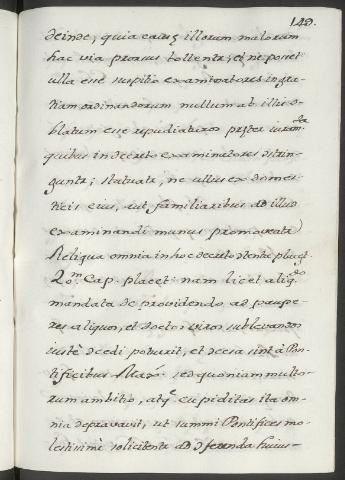 149.
deinde, quia causę illorum malorum
hac via prorsus tollentr; et ne posset
ulla esse suspitio examinatores in gra-
tiam ordinandorum nullum ab illis o-
blatum esse repudiaturos pręter iuram.
quibus in decreto examinatores
guntr; statuatr, ne ullus ex domes-
ticis eius, aut familiaribus ad illud
examinandi munus promoveatr
Reliqua omnia in hoc decreto
20.m Cap. placet: nam licet aliq.do
mandata de providendo ad paupe-
res aliquos, et doctos viros sublevandos
iustè dedi potuerit, et
tificibus Max. sed quoniam multo-
rum ambitio, atq. cupiditas ita om-
nia depravavit, ut summi Pontifices mo-
lestissimè solicitentr ad huius-